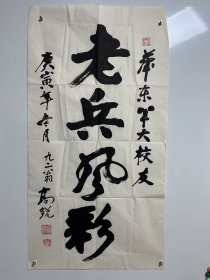 华东军大校友
老兵风彩
庚寅年冬月 九二翁 高锐